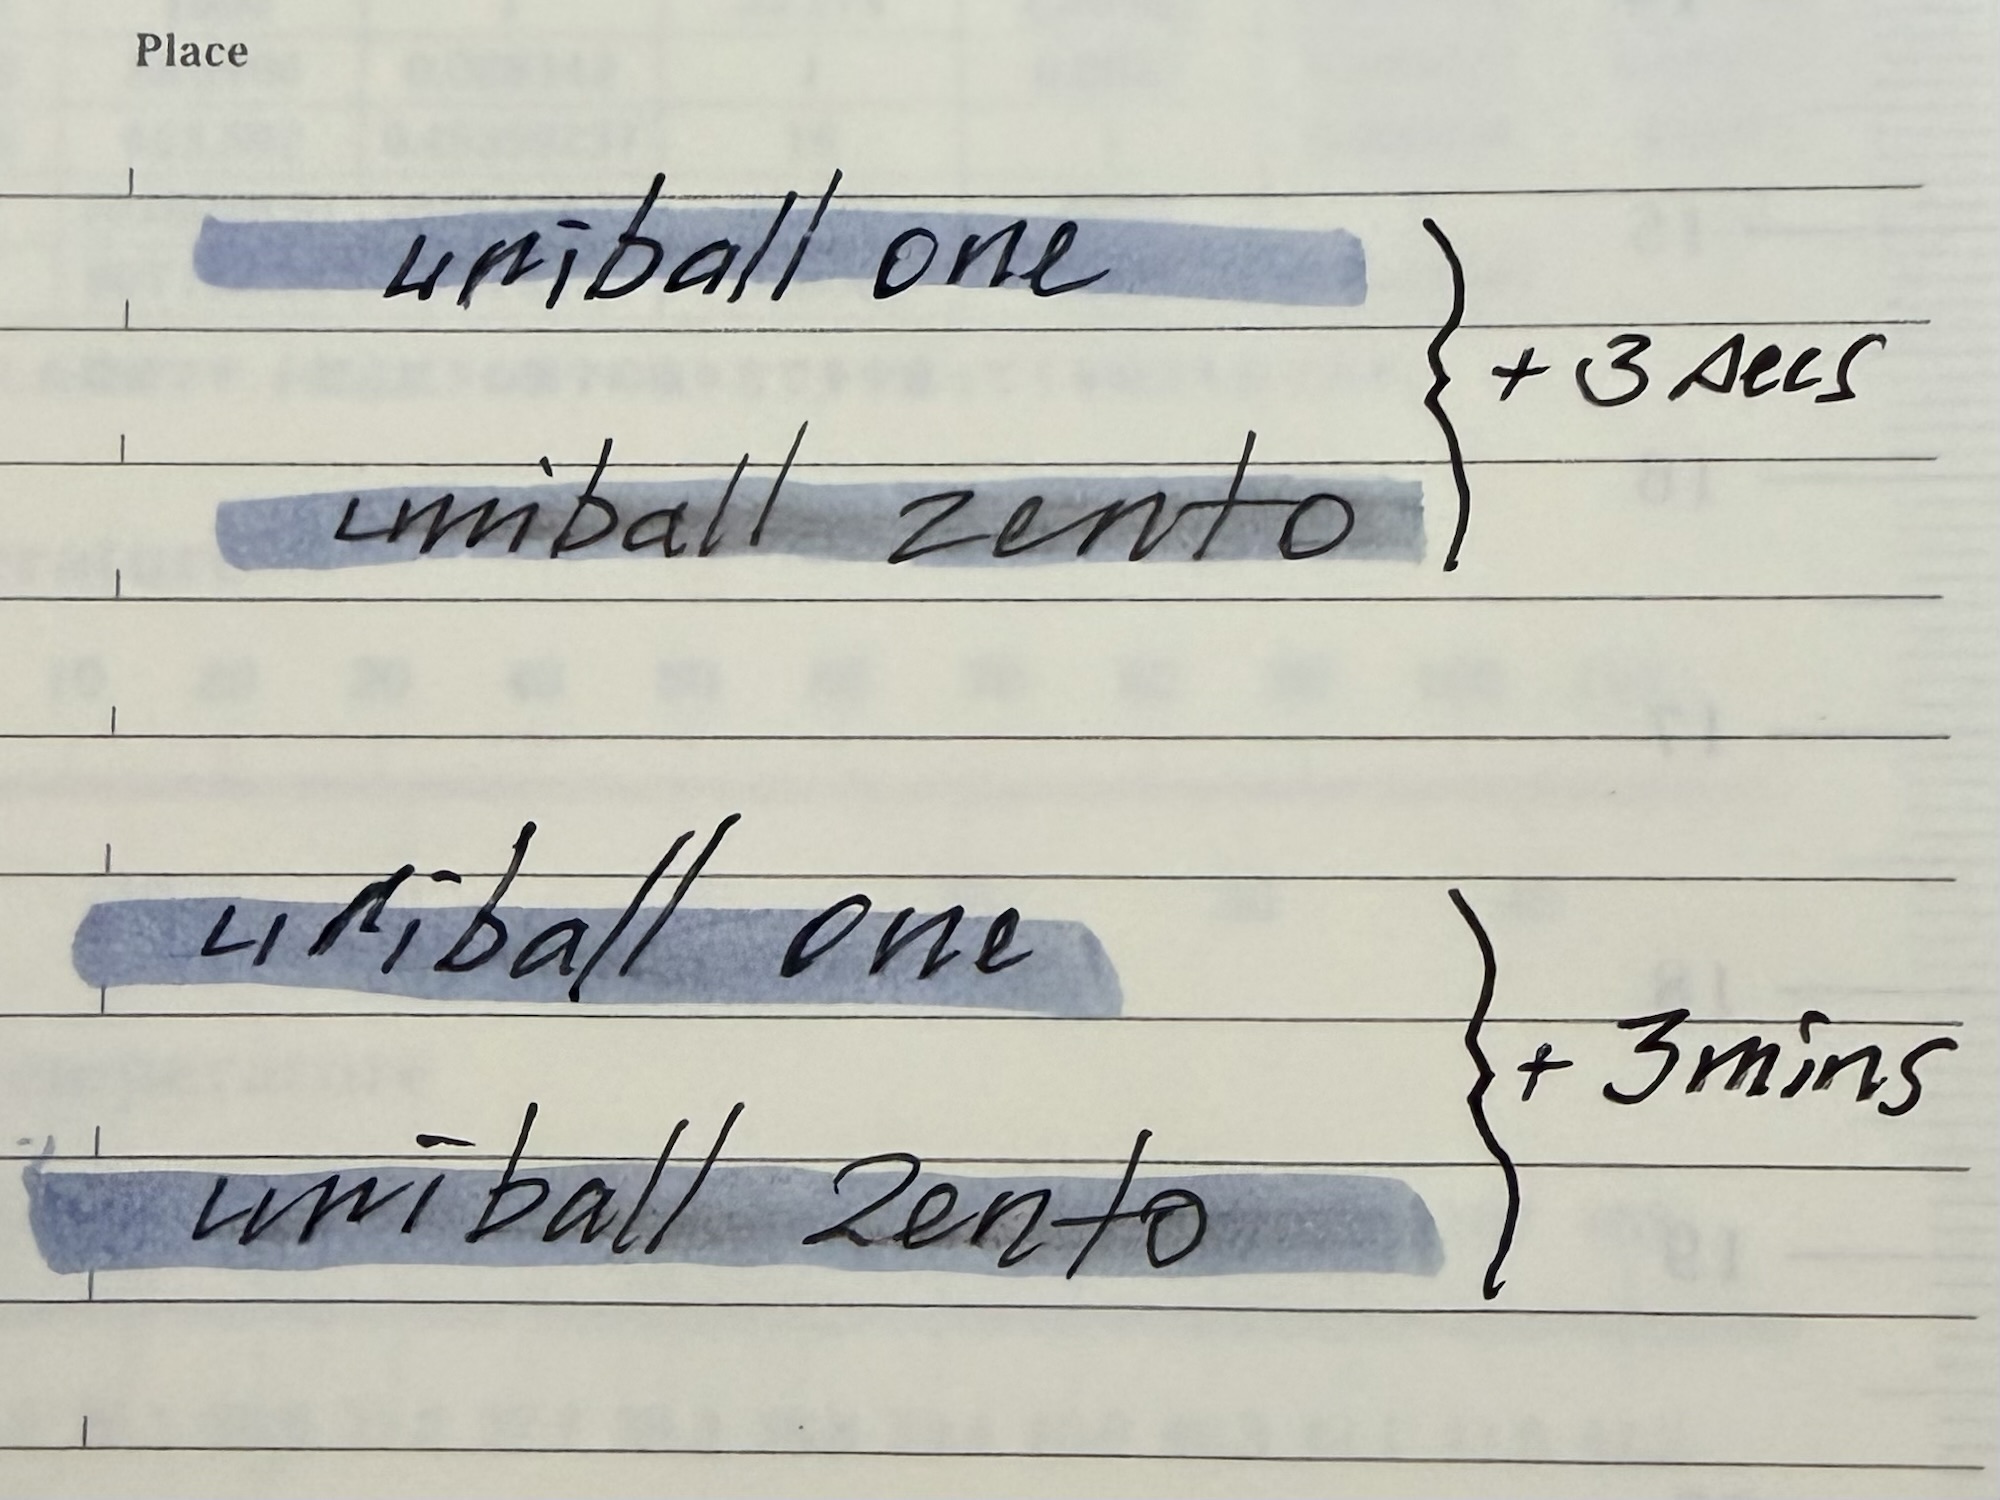 Place
uniball one
+ 3 secs
uniball zento
uniball one
+ 3 mins
uniball zento